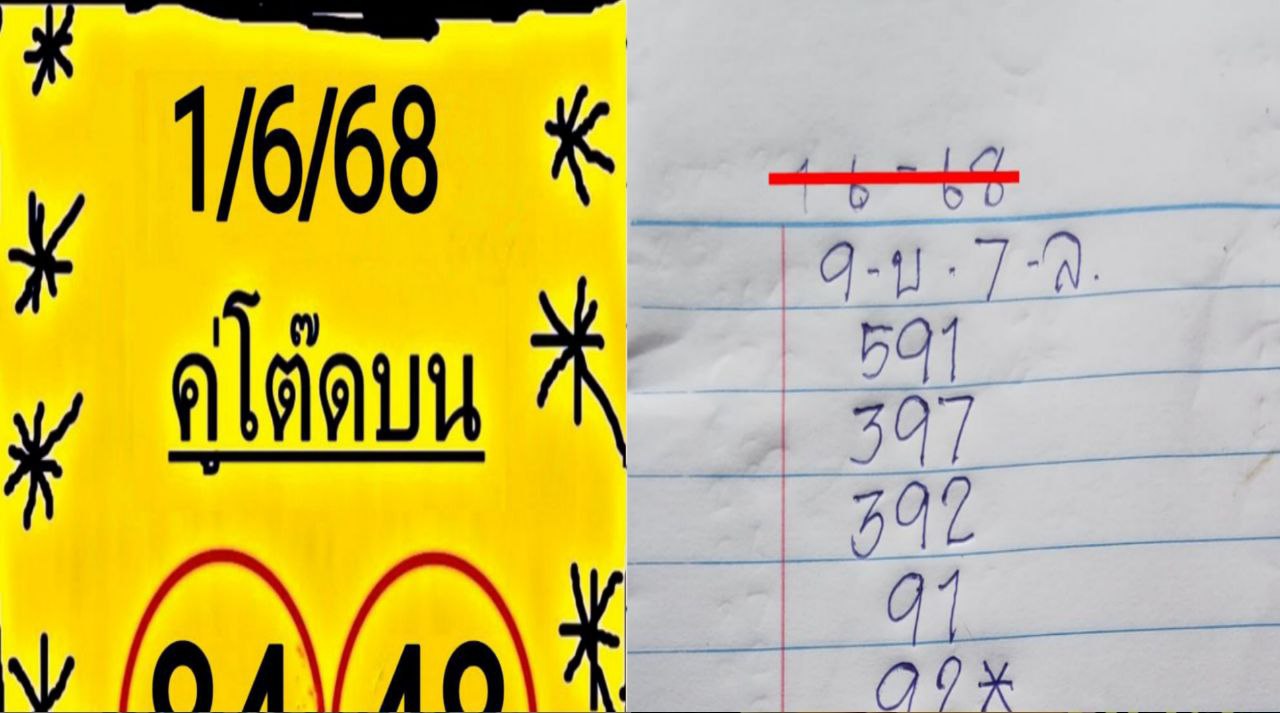 1/6/68
คู่โต๊ดบน
1 6 - 68
9-บ . 7 -ล.
591
397
392
91
92*